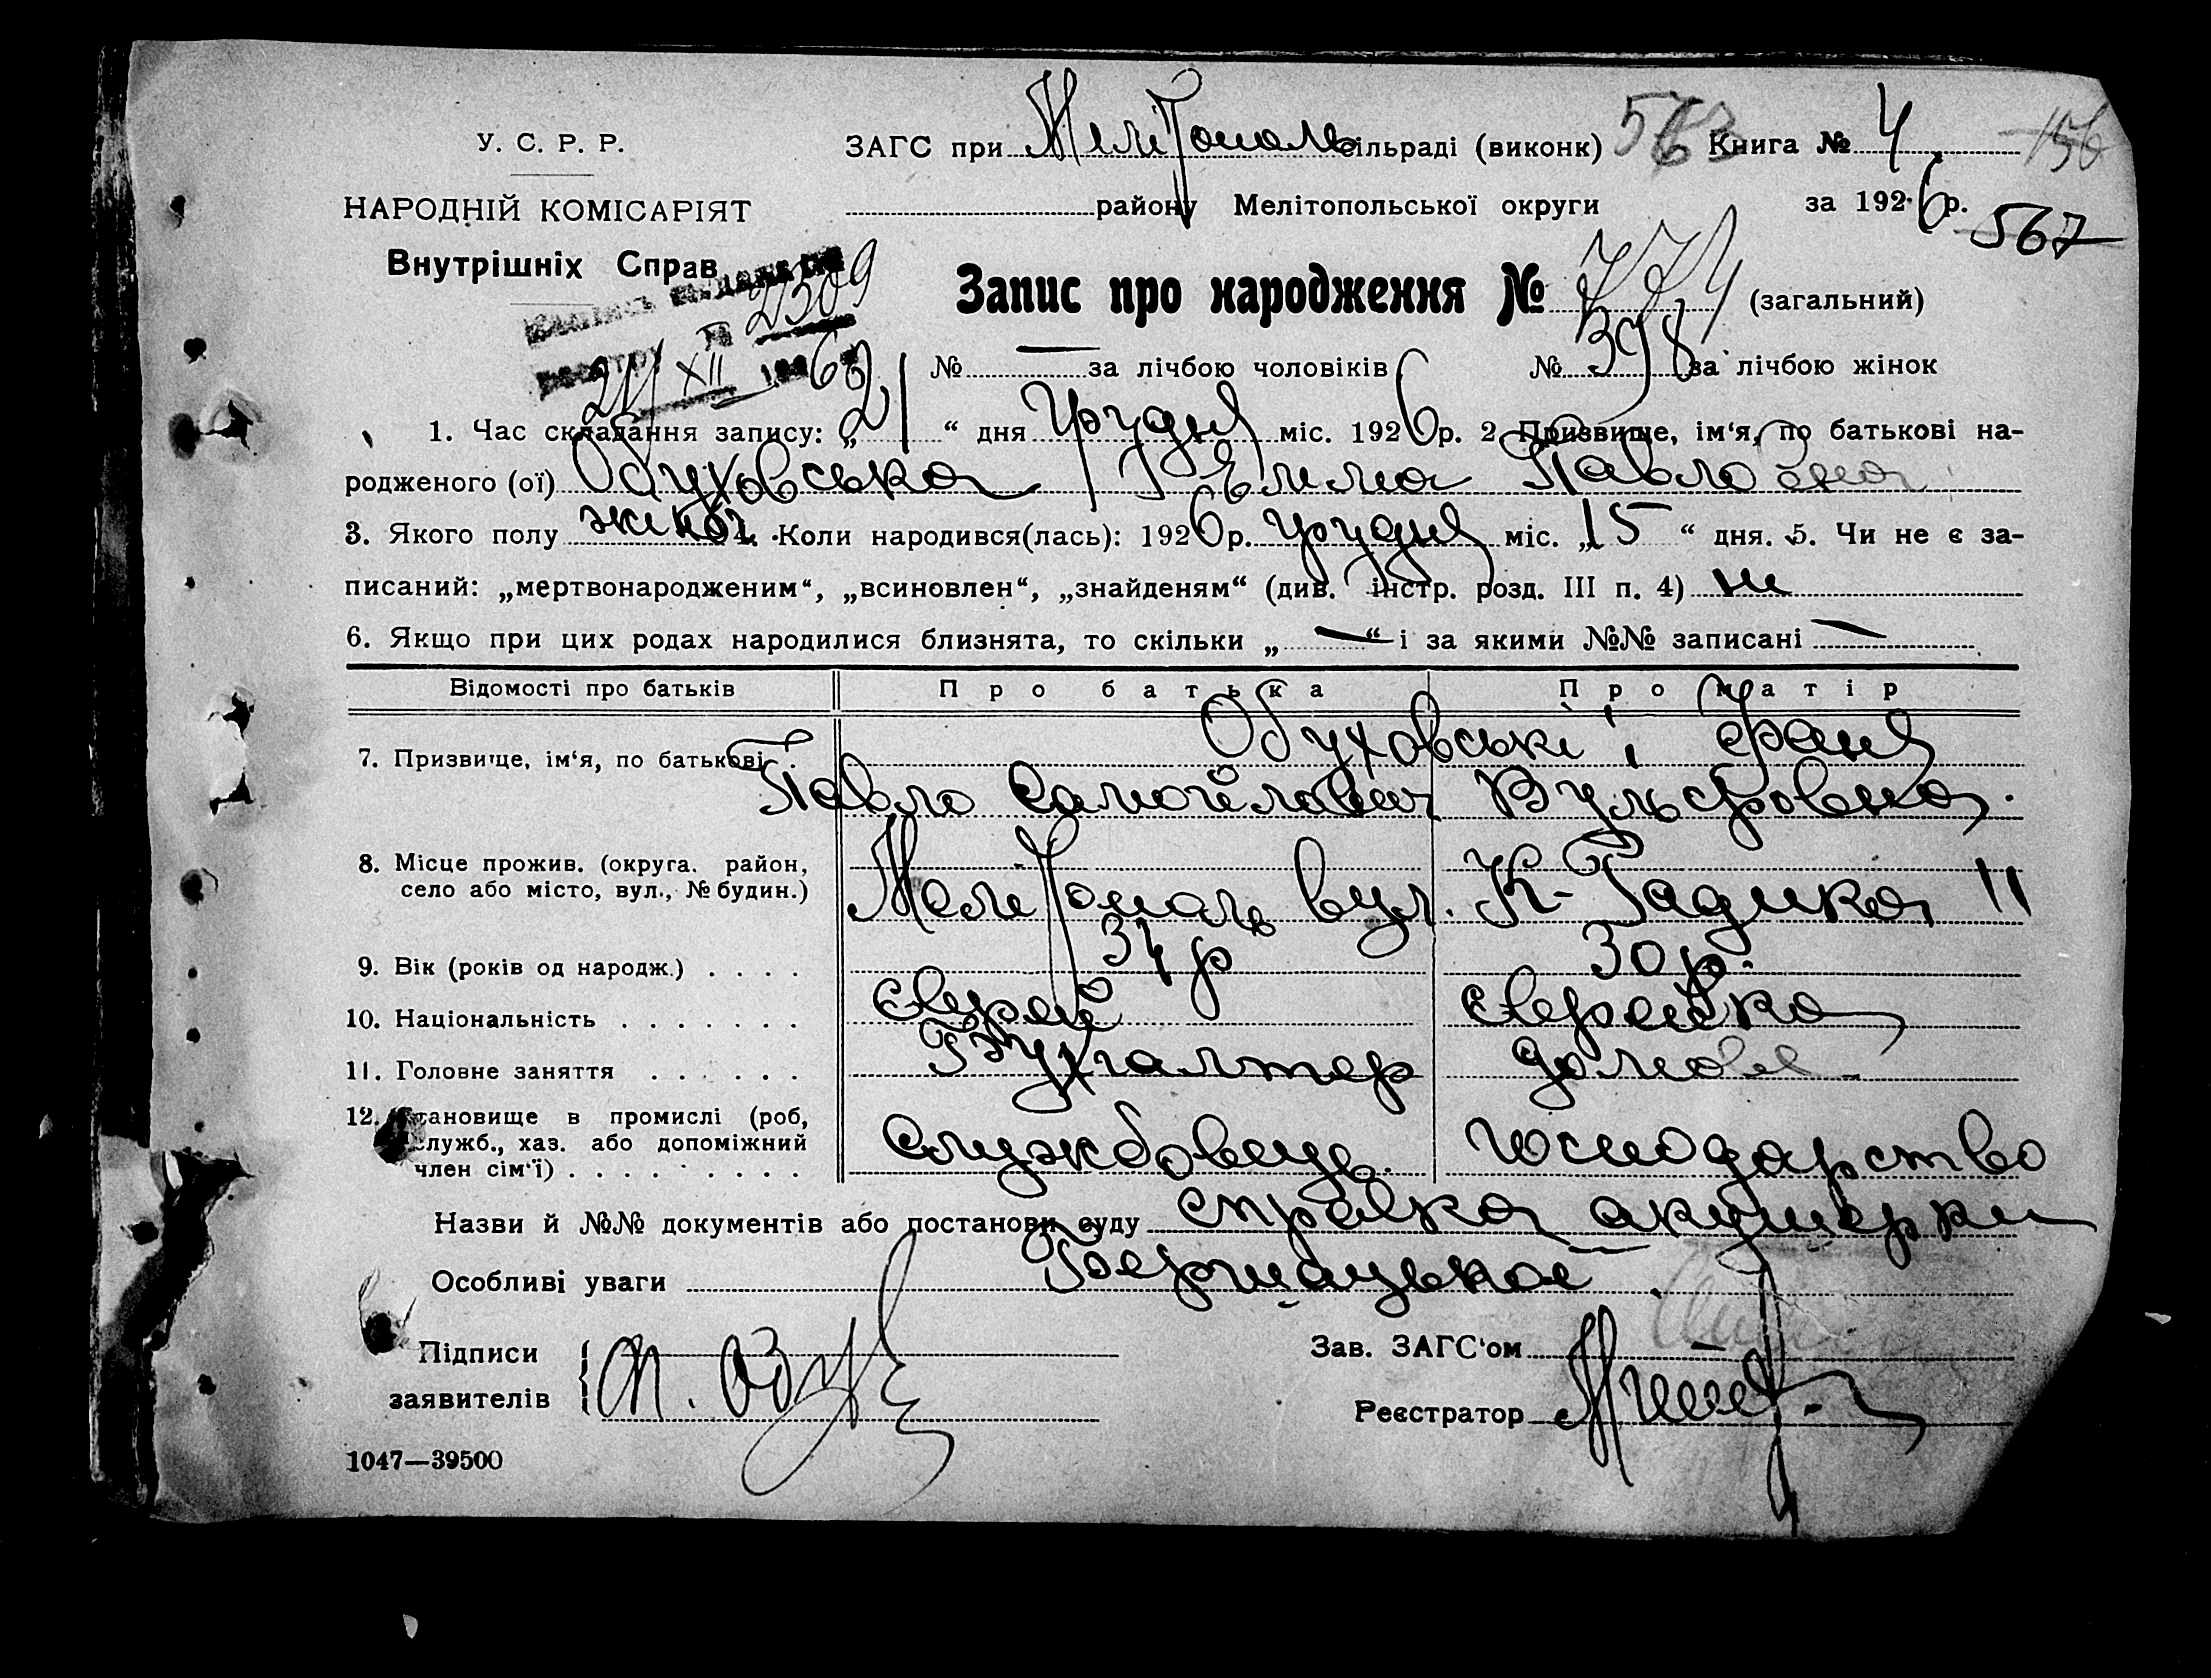 У. С. Р. Р.
ЗАГС при Мелітополь сільраді (виконк) 563 Книга № 4 156
НАРОДНІЙ КОМІСАРІЯТ
району Мелітопольської округи за 1926 р.
567
Внутрішніх Справ
2309
Запис про народження № 774 (загальний)
24 XII 1926
№ — за лічбою чоловіків № 398 за лічбою жінок
1. Час складання запису: „21“ дня Грудня міс. 1926 р. 2. Призвище, ім‘я, по батькові на-
родженого (ої) Обуховська Павловна
3. Якого полу жіноч. 4. Коли народився(лась): 1926 р. грудня міс. „15“ дня. 5. Чи не є за-
писаний: „мертвонародженим“, „всиновлен“, „знайденям“ (див. інстр. розд. III п. 4) ни
6. Якщо при цих родах народилися близнята, то скільки „—“ і за якими №№ записані —
Відомості про батьків Про батька Про матір
7. Призвище, ім‘я, по батькові . Обуховські і Фаня
Павло Самойлович Вульфовна.
8. Місце прожив. (округа. район,
село або місто, вул., № будин.)
Мелитополь вул. К-Радика 11
9. Вік (років од народж.) . . . . 34 р 30 р.
10. Національність . . . . . . . єврей єврейка
11. Головне заняття . . . . . . Бухгалтер домове
12. Становище в промислі (роб,
служб., хаз. або допоміжний
член сім‘ї) . . . . . . . . службовець господарство
Назви й №№ документів або постанови суду справка акушерки
Особливі уваги
Підписи
заявителів
Зав. ЗАГС‘ом
Реєстратор
1047—39500